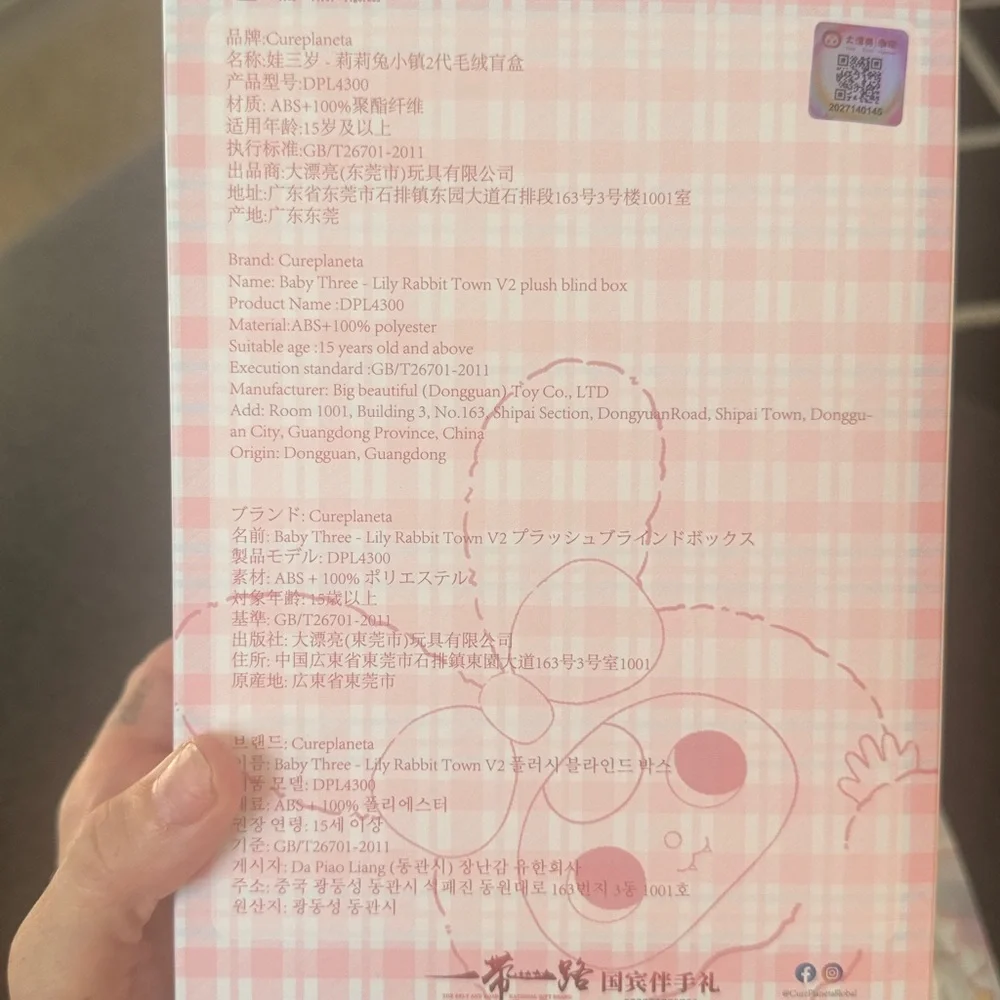 品牌:Cureplaneta
名称:娃三岁 - 莉莉兔小镇2代毛绒盲盒
产品型号:DPL4300
材质: ABS+100%聚酯纤维
适用年龄:15岁及以上
执行标准:GB/T26701-2011
出品商:大漂亮(东莞市)玩具有限公司
地址:广东省东莞市石排镇东园大道石排段163号3号楼1001室
产地:广东东莞
2027140145
Brand: Cureplaneta
Name: Baby Three - Lily Rabbit Town V2 plush blind box
Product Name :DPL4300
Material:ABS+100% polyester
Suitable age :15 years old and above
Execution standard :GB/T26701-2011
Manufacturer: Big beautiful (Dongguan) Toy Co., LTD
Add: Room 1001, Building 3, No.163, Shipai Section, DongyuanRoad, Shipai Town, Donggu-
an City, Guangdong Province, China
Origin: Dongguan, Guangdong
ブランド: Cureplaneta
名前: Baby Three - Lily Rabbit Town V2 プラッシュブラインドボックス
製品モデル: DPL4300
素材: ABS + 100% ポリエステル
対象年齢: 15歳以上
基準: GB/T26701-2011
出版社: 大漂亮(東莞市)玩具有限公司
住所: 中国広東省東莞市石排鎮東園大道163号3号室1001
原産地: 広東省東莞市
브랜드: Cureplaneta
이름: Baby Three - Lily Rabbit Town V2 플러시 블라인드 박스
모델: DPL4300
ABS + 100% 폴리에스터
권장 연령: 15세 이상
기준: GB/T26701-2011
게시자: Da Piao Liang (동관시) 장난감 유한회사
주소: 중국 광둥성 동관시 석패진 동원대로 163번지 3동 1001호
원산지: 광동성 동관시
一带一路 国宾伴手礼